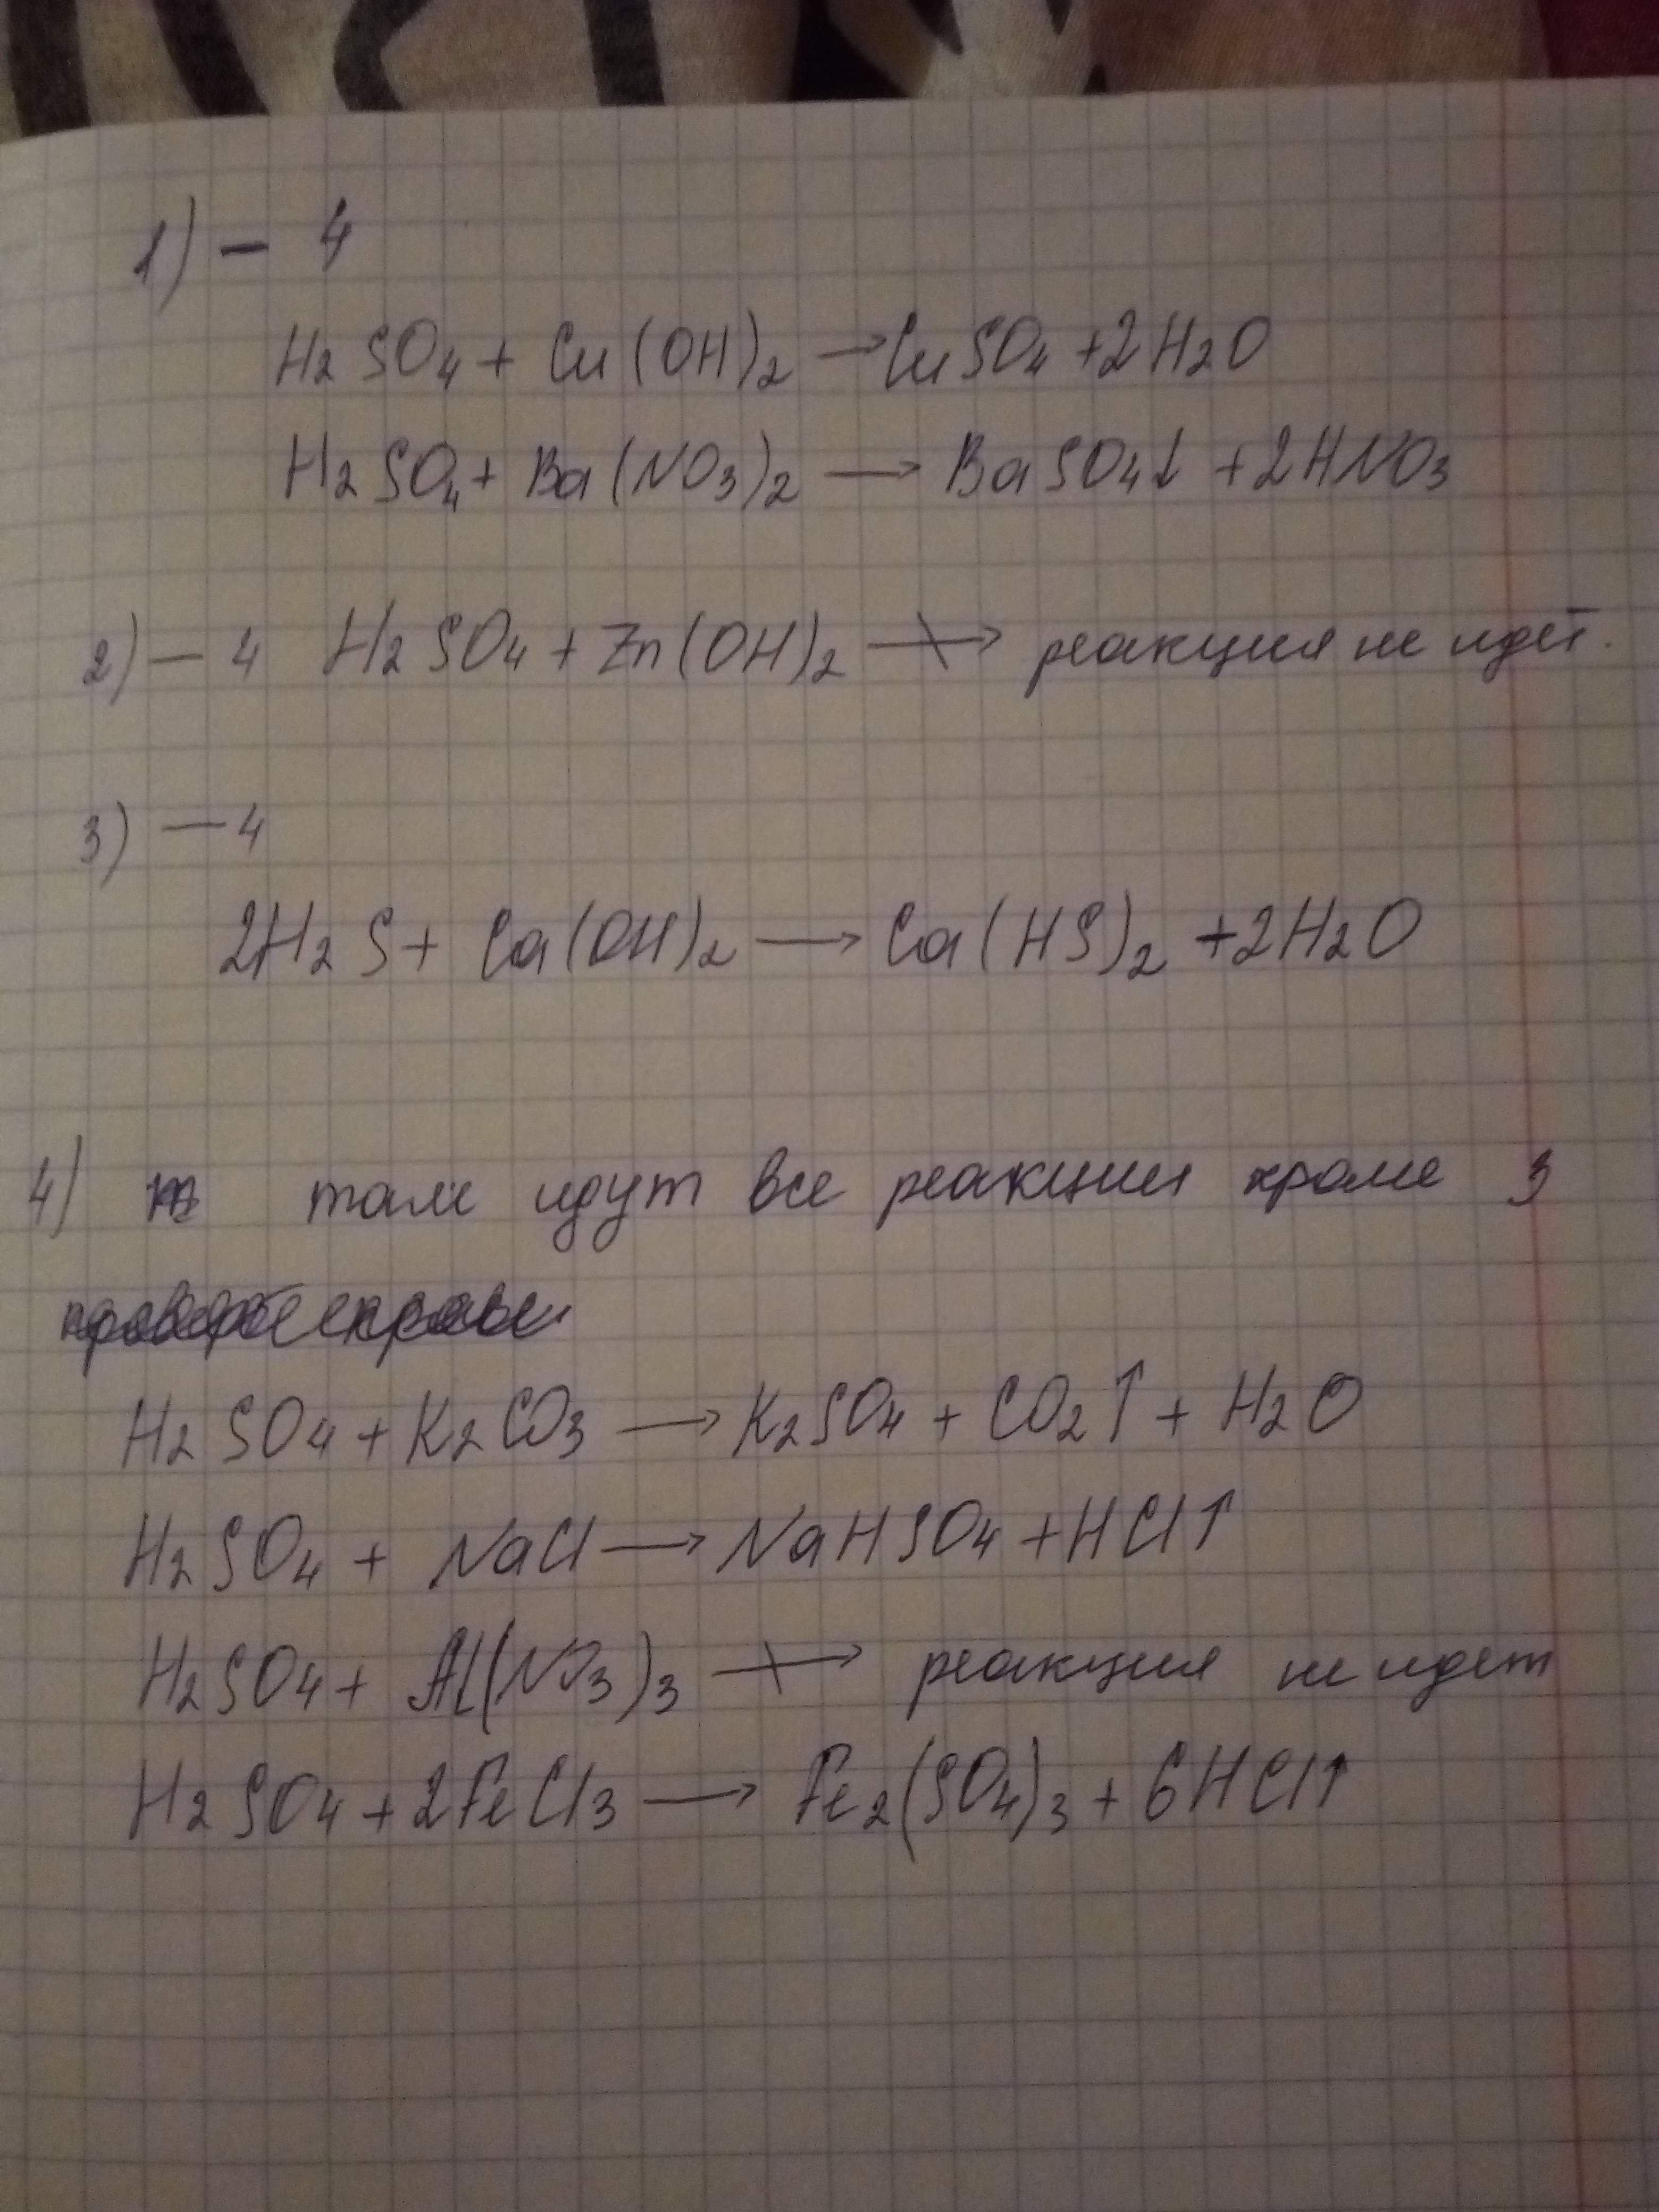 1) – 4
H2SO4 + Cu(OH)2 → CuSO4 + 2H2O
H2SO4 + Ba(NO3)2 → BaSO4↓ + 2HNO3
2) – 4 H2SO4 + Zn(OH)2 ↛ реакция не идет.
3) – 4
2H2S + Ca(OH)2 → Ca(HS)2 + 2H2O
4) там идут все реакции кроме 3
H2SO4 + K2CO3 → K2SO4 + CO2↑ + H2O
H2SO4 + NaCl → NaHSO4 + HCl↑
H2SO4 + Al(NO3)3 ↛ реакция не идет
H2SO4 + 2FeCl3 → Fe2(SO4)3 + 6HCl↑